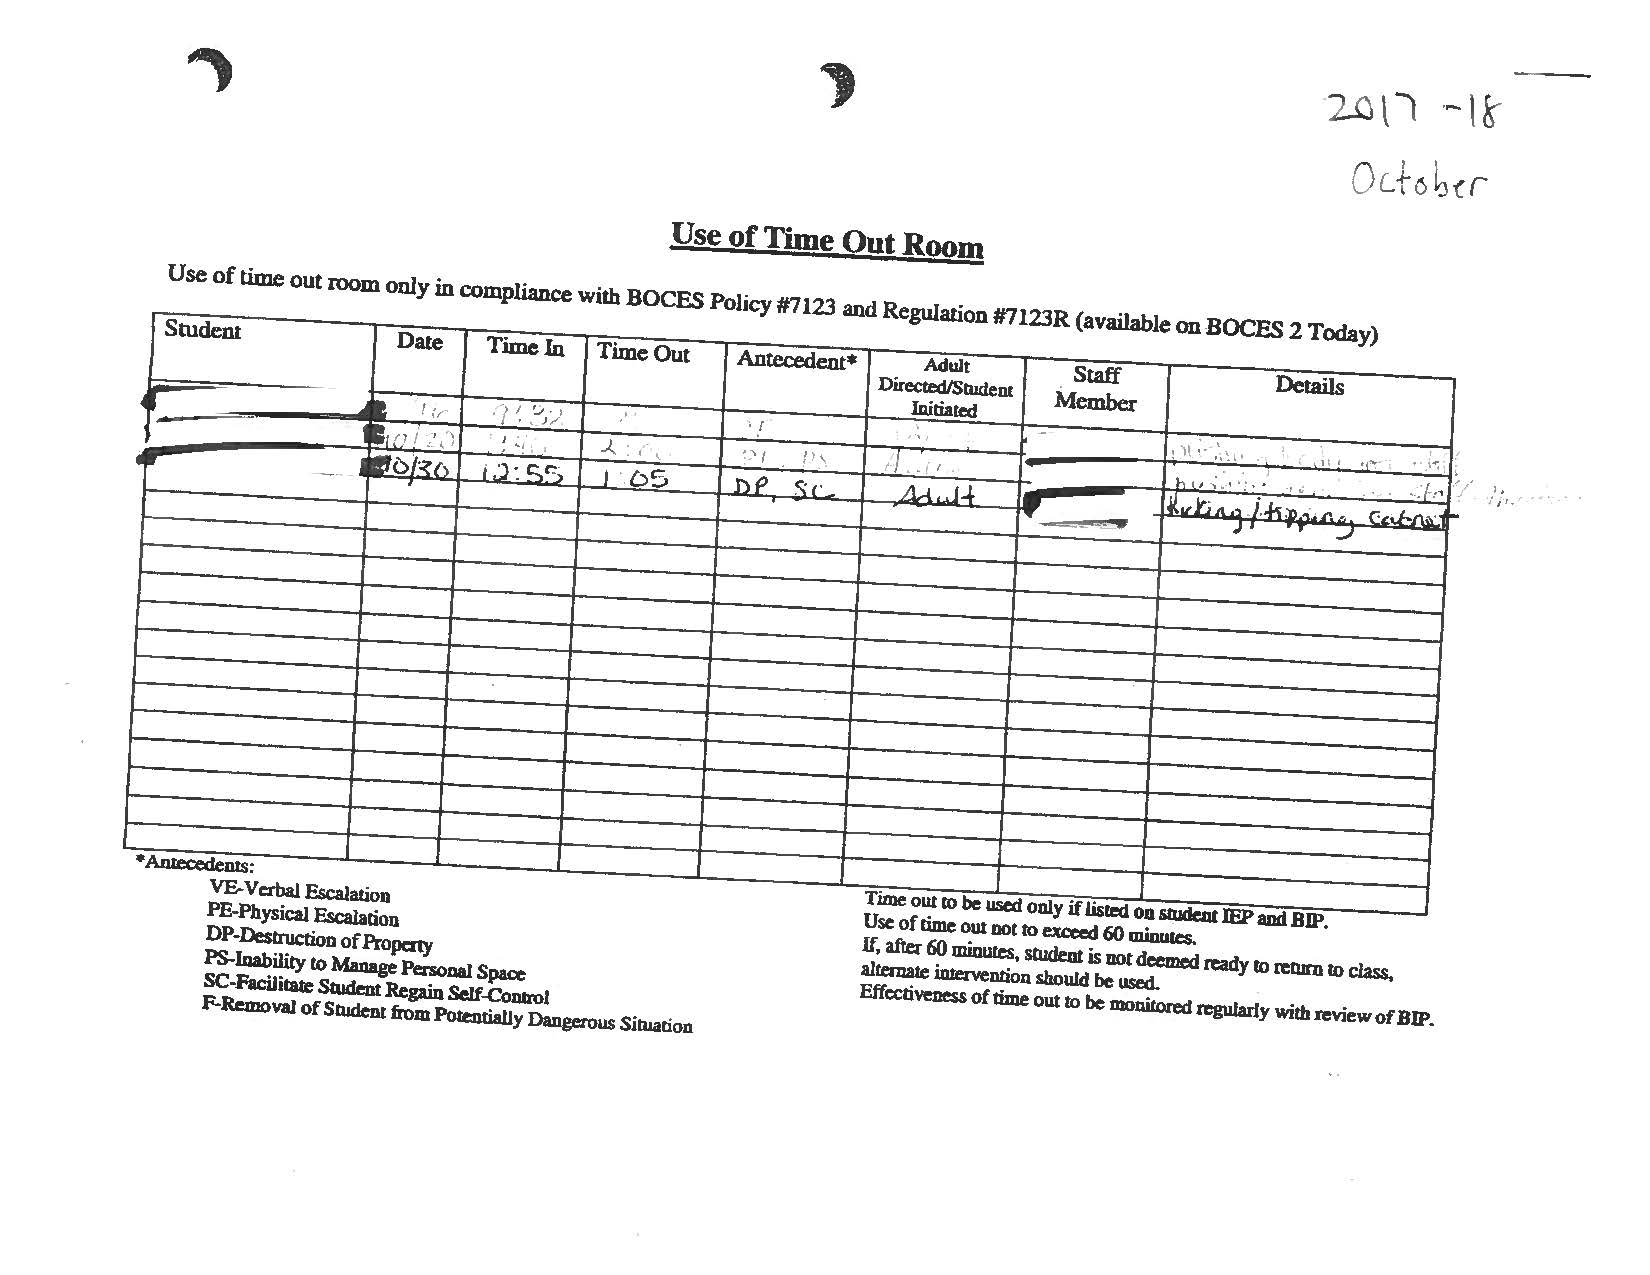 2017 -18
October
Use of Time Out Room
Use of time out room only in compliance with BOCES Policy #7123 and Regulation #7123R (available on BOCES 2 Today)
Student Date Time In Time Out Antecedent* Adult Directed/Student Initiated Staff Member Details
9:32
10/20 2:00
10/30 12:55 1:05 DP, SC Adult kicking/tipping cabnet
*Antecedents:
VE-Verbal Escalation
PE-Physical Escalation
DP-Destruction of Property
PS-Inability to Manage Personal Space
SC-Facilitate Student Regain Self-Control
F-Removal of Student from Potentially Dangerous Situation
Time out to be used only if listed on student IEP and BIP.
Use of time out not to exceed 60 minutes.
If, after 60 minutes, student is not deemed ready to return to class,
alternate intervention should be used.
Effectiveness of time out to be monitored regularly with review of BIP.